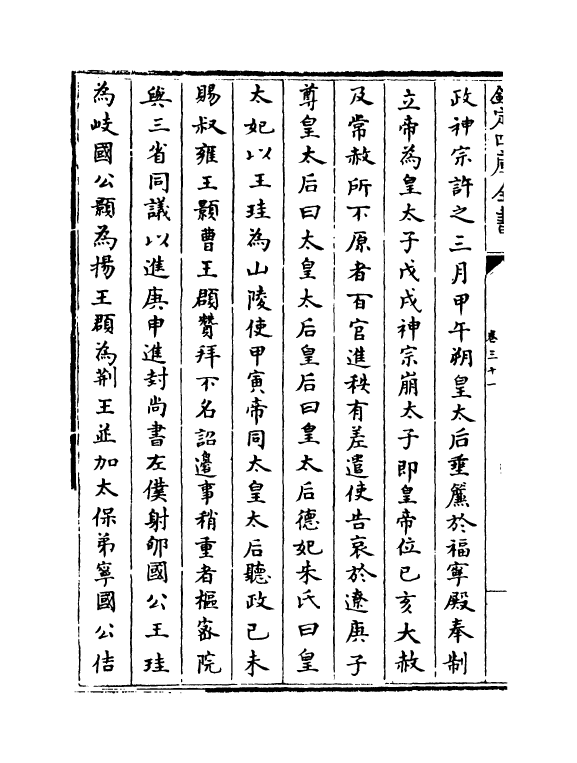 欽定四庫全書
卷三十一
政神宗許之三月甲午朔皇太后垂簾於福寧殿奉制
立帝為皇太子戊戌神宗崩太子即皇帝位已亥大赦
及常赦所不原者百官進秩有差遣使告哀於遼庚子
尊皇太后曰太皇太后皇后曰皇太后德妃朱氏曰皇
太妃以王珪為山陵使甲寅帝同太皇太后聽政已未
賜叔雍王顥曹王頵贊拜不名詔邊事稍重者樞密院
與三省同議以進庚申進封尚書左僕射郇國公王珪
為岐國公顥為揚王頵為荆王並加太保弟寧國公佶